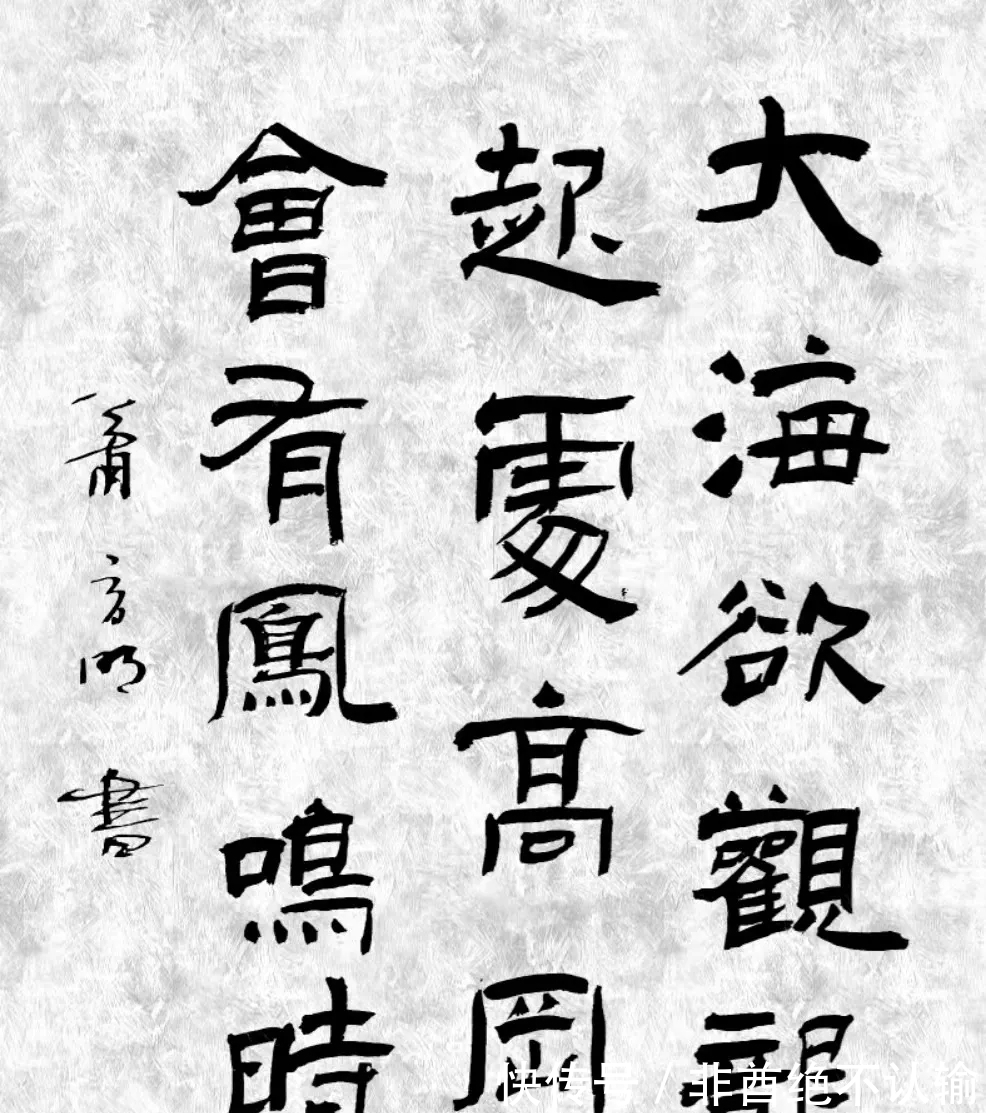 大海欲觀龍
起處高岡
會有鳳鳴時
蕭 明 書
快传号 / 菲酉绝不认输